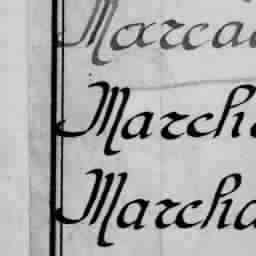 Marca
March
Marcha